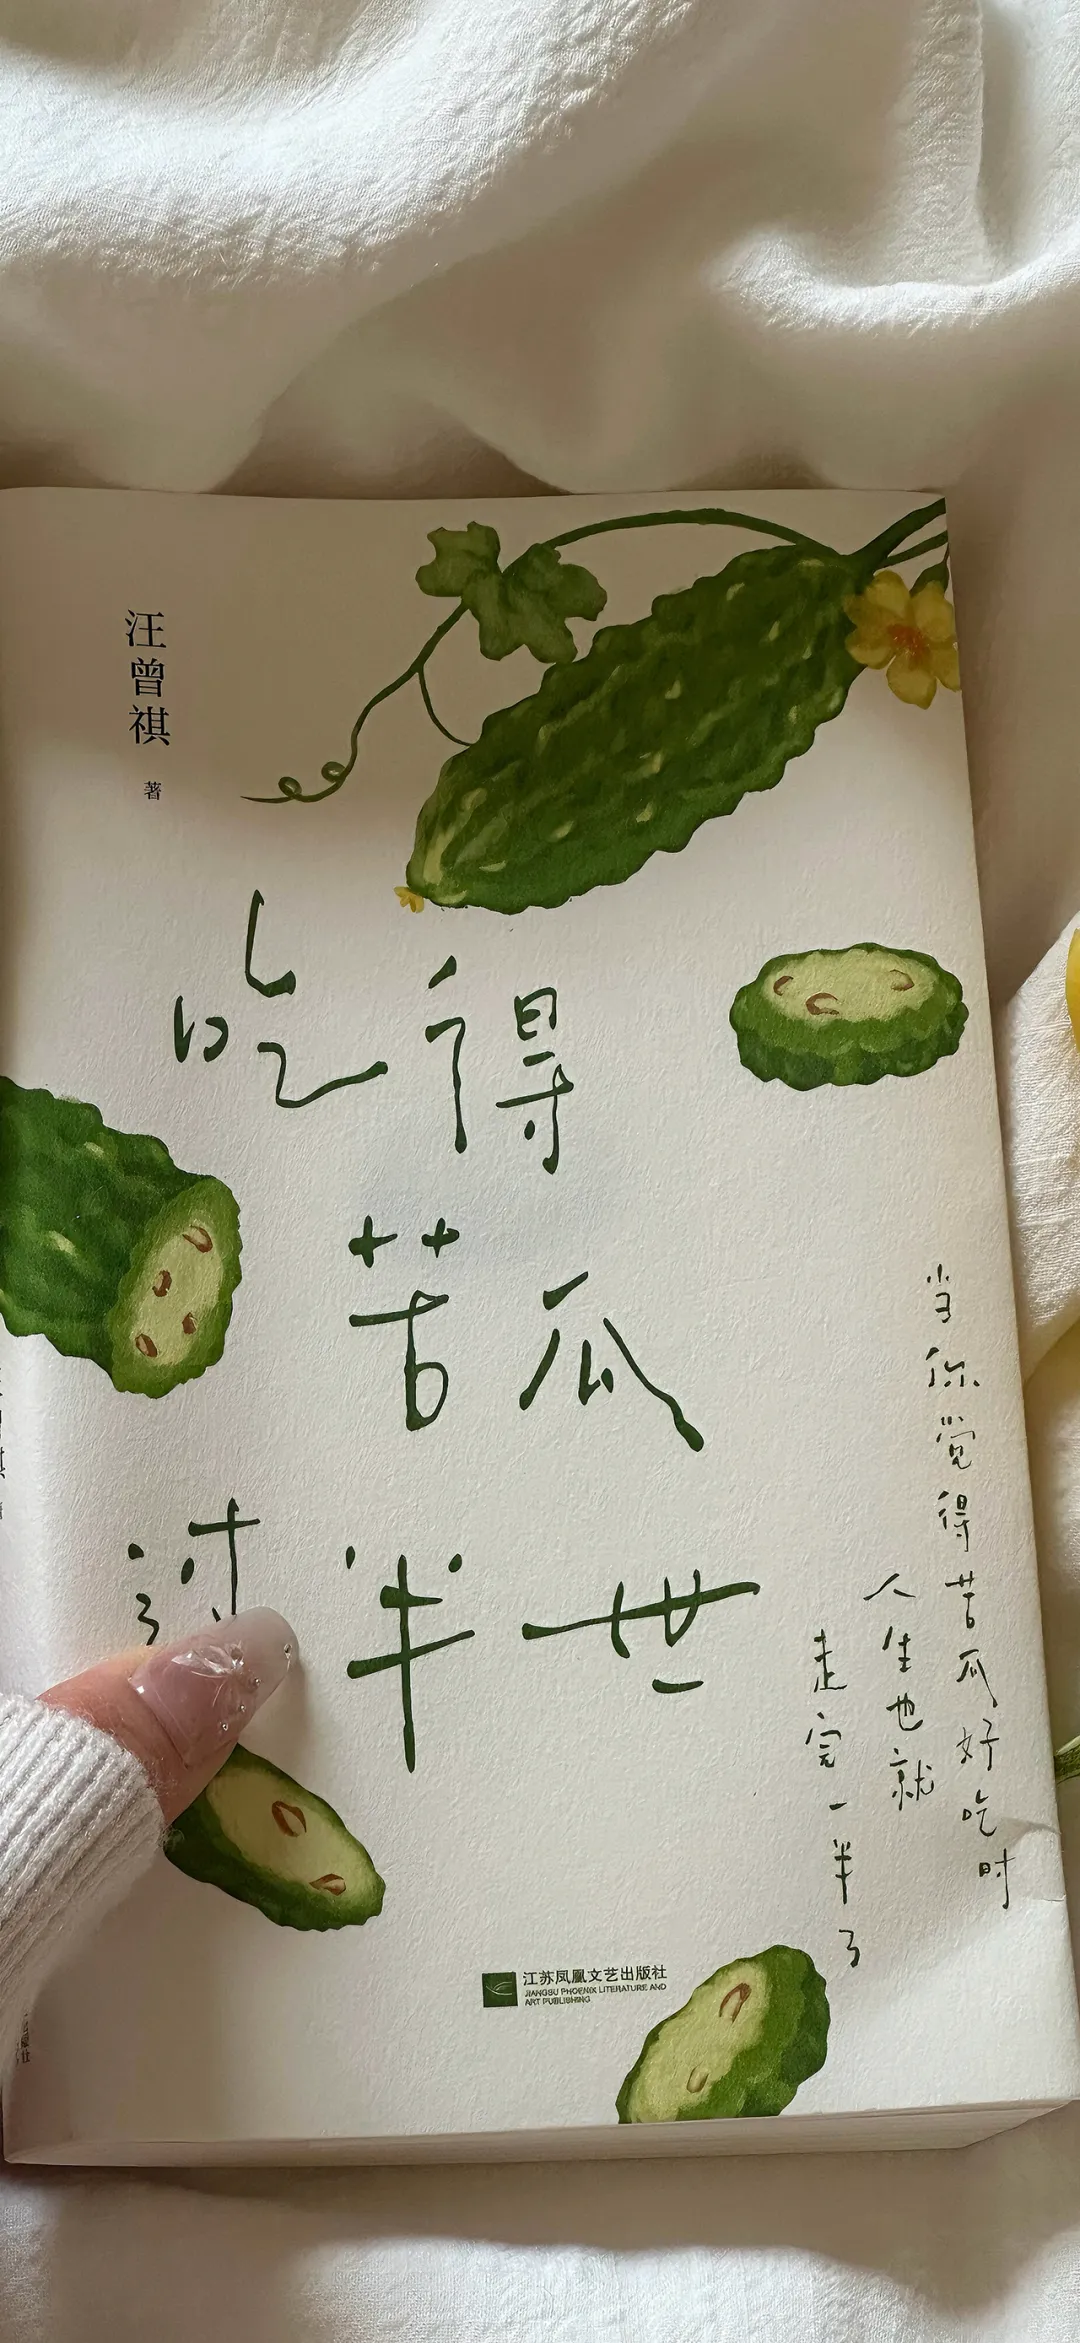 汪曾祺
著
吃得
苦瓜
过半世
当你觉得苦瓜好吃时
人生也就
走完一半了
江苏凤凰文艺出版社
JIANGSU PHOENIX LITERATURE AND
ART PUBLISHING